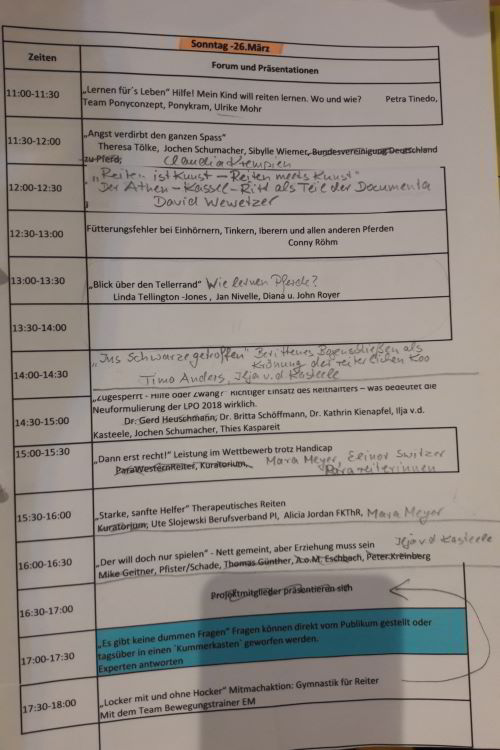 Sonntag -26.März
Zeiten
Forum und Präsentationen
11:00-11:30
„Lernen für´s Leben“ Hilfe! Mein Kind will reiten lernen. Wo und wie? Petra Tinedo,
Team Ponyconzept, Ponykram, Ulrike Mohr
11:30-12:00
„Angst verdirbt den ganzen Spass“
Theresa Tölke, Jochen Schumacher, Sibylle Wiemer, Bundesvereinigung Deutschland
zu Pferd, Claudia Krempien
12:00-12:30
„Reiten ist Kunst – Reiten meets Kunst“
Der Athen – Kassel – Ritt als Teil der Documenta
David Wewetzer
12:30-13:00
Fütterungsfehler bei Einhörnern, Tinkern, Iberern und allen anderen Pferden
Conny Röhm
13:00-13:30
„Blick über den Tellerrand“ Wie lernen Pferde?
Linda Tellington -Jones , Jan Nivelle, Diana u. John Royer
13:30-14:00
14:00-14:30
„Ins Schwarze getroffen“ Berittenes Bogenschießen als
Krönung der reiterlichen Koo
Timo Anders, Ilja v.d Kasteele
„Zugesperrt - Hilfe oder Zwang? Richtiger Einsatz des Reithalfters – was bedeutet die
Neuformulierung der LPO 2018 wirklich.
14:30-15:00
Dr. Gerd Heuschmann, Dr. Britta Schöffmann, Dr. Kathrin Kienapfel, Ilja v.d.
Kasteele, Jochen Schumacher, Thies Kaspareit
15:00-15:30
„Dann erst recht!“ Leistung im Wettbewerb trotz Handicap
ParaWesternReiter, Kuratorium, Mara Meyer, Elinor Switzer
Parareiterinnen
15:30-16:00
„Starke, sanfte Helfer“ Therapeutisches Reiten
Kuratorium, Ute Slojewski Berufsverband PI, Alicia Jordan FKThR, Mara Meyer
16:00-16:30
„Der will doch nur spielen“ - Nett gemeint, aber Erziehung muss sein Ilja v.d Kasteele
Mike Geitner, Pfister/Schade, Thomas Günther, A.o.M. Eschbach, Peter Kreinberg
16:30-17:00
Projektmitglieder präsentieren sich
17:00-17:30
„Es gibt keine dummen Fragen“ Fragen können direkt vom Publikum gestellt oder
tagsüber in einen ´Kummerkasten´ geworfen werden.
Experten antworten
17:30-18:00
„Locker mit und ohne Hocker“ Mitmachaktion: Gymnastik für Reiter
Mit dem Team Bewegungstrainer EM